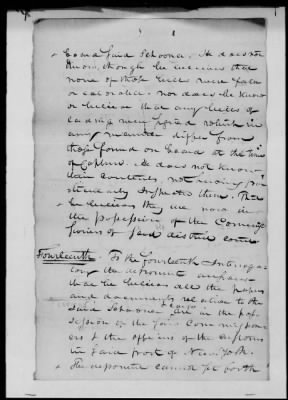 board said Schooner. He does not
know, though he believes that
none of those bills were false
or colorable. nor does he know
or believe that any bills of
lading were signed which in
any manner differ from
those found on board at the time
of Capture. He does not know
their contents, not having par-
ticularly inspected them. But
he believes they are now in
the possession of the Commis-
sioners of said district court
Fourteenth. To the fourteenth Interroga-
tory the deponent answers
that he believes all the papers
and documents relative to the
said Schooner are in the pos-
session of the said Commissioners
or the officers of the Customs
in said port of New York.
The deponent cannot set forth